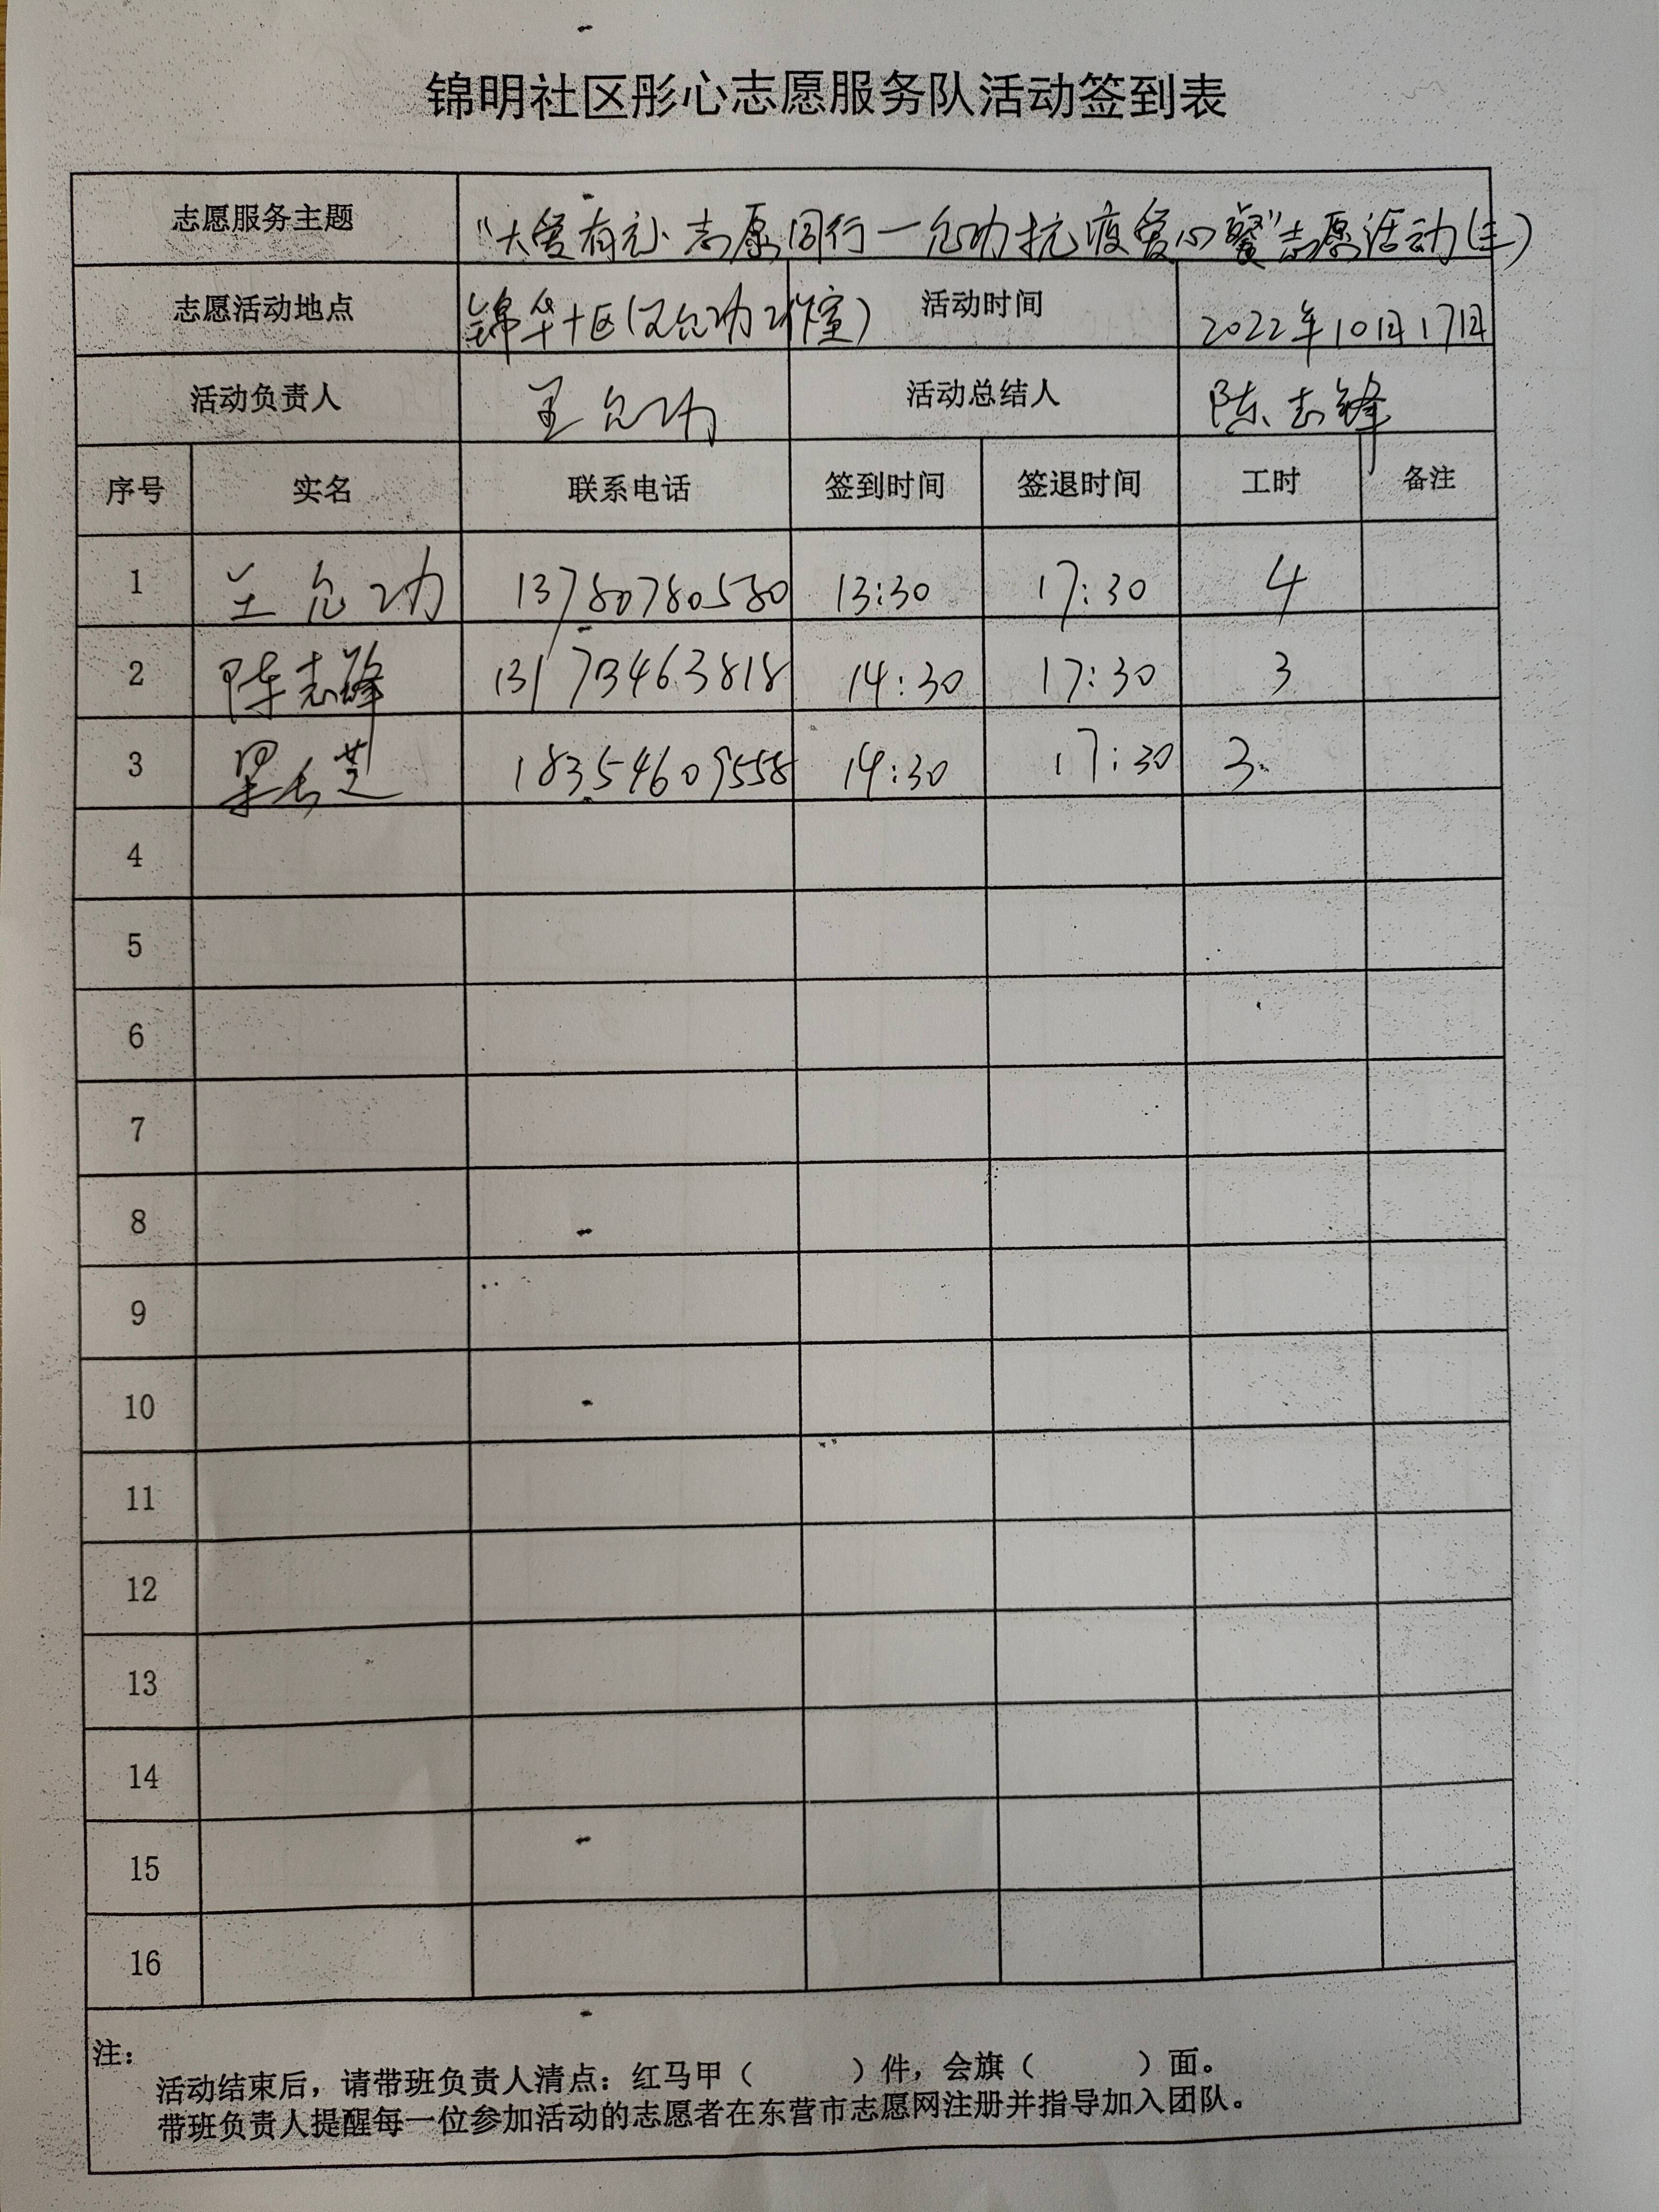 锦明社区彤心志愿服务队活动签到表
志愿服务主题 “大爱有元·志愿同行一允功抗疫爱心餐”志愿活动(三)
志愿活动地点 锦华十区(王允功工作室) 活动时间 2022年10月17日
活动负责人 王允功 活动总结人 陈志锋
序号 实名 联系电话 签到时间 签退时间 工时 备注
1 王允功 13780780580 13:30 17:30 4
2 陈志锋 13173463818 14:30 17:30 3
3 18354609558 14:30 17:30 3
4
5
6
7
8
9
10
11
12
13
14
15
16
注：
活动结束后，请带班负责人清点：红马甲（ ）件，会旗（ ）面。
带班负责人提醒每一位参加活动的志愿者在东营市志愿网注册并指导加入团队。